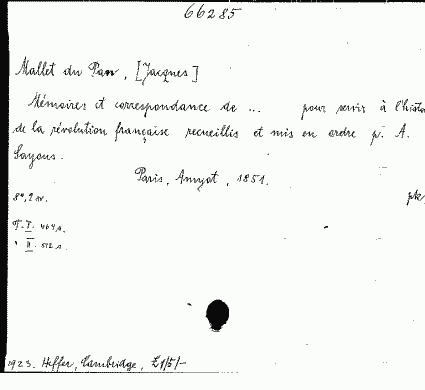 66285
Mallet du Pan, [Jacques]
Mémoires et correspondance de ... pour servir à l'histo
de la révolution française recueillis et mis en ordre p. A.
Sayous.
Paris, Amyot, 1851.
8°, 2 v.
T. I. 464 s.
" II. 512 s.
1923. Heffer, Cambridge, £1/5/-